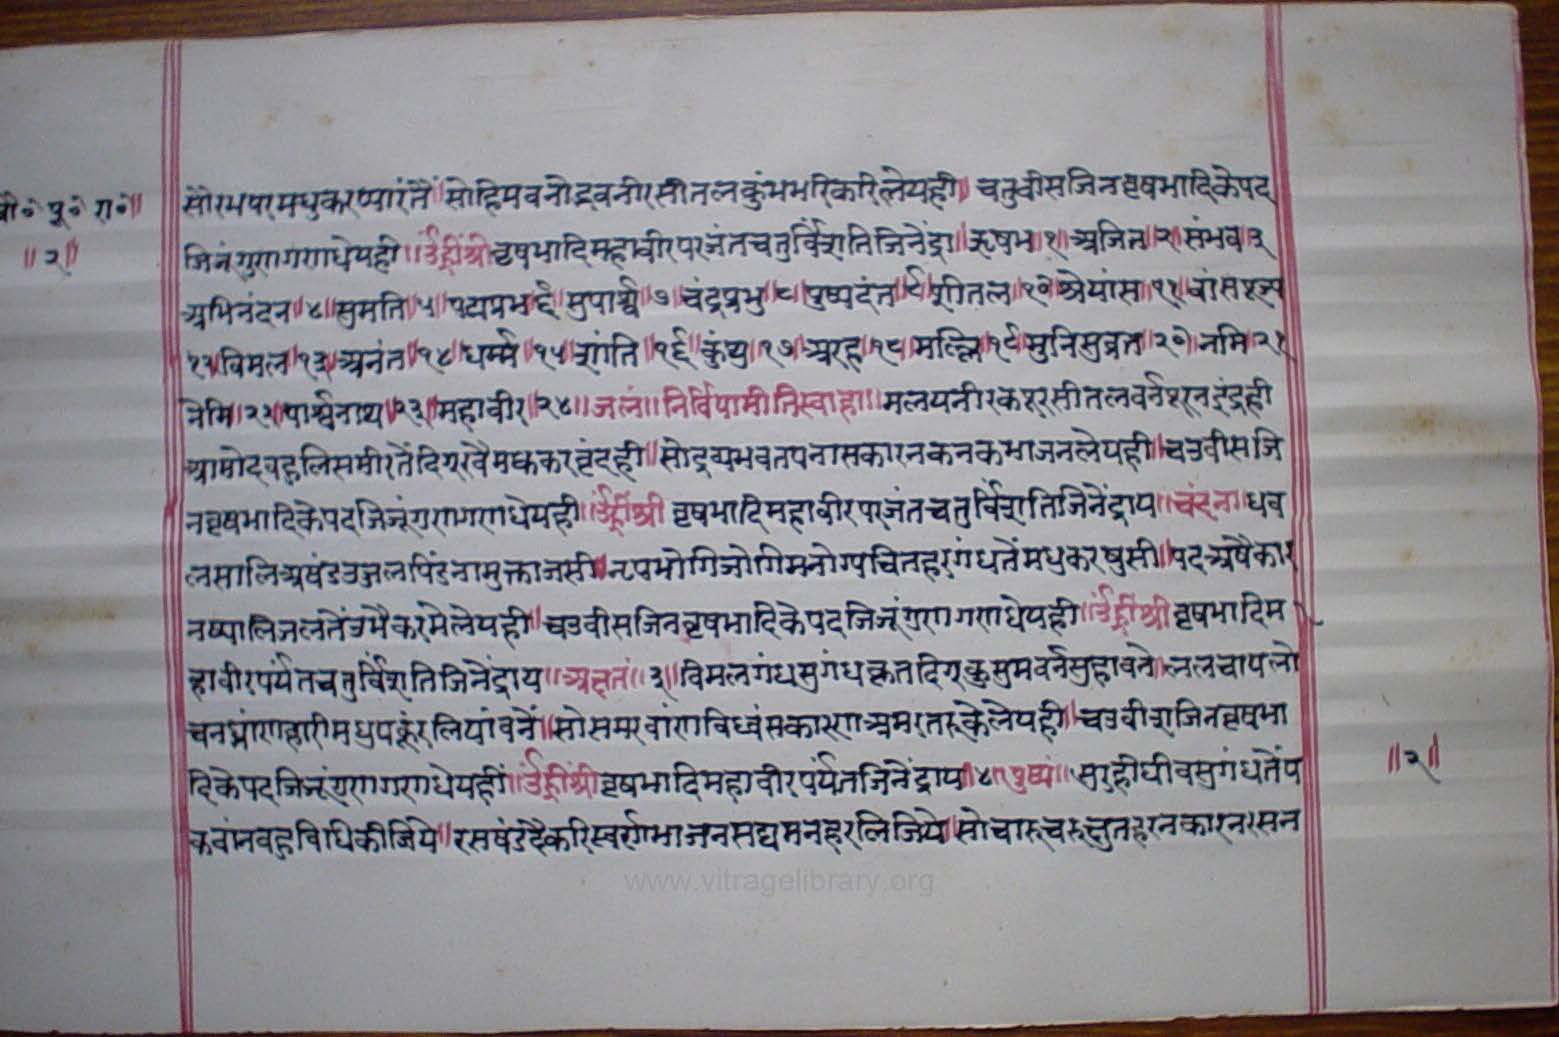 चौ॰ पू॰ रा॰॥
॥२॥
सौरभपरमधुकरप्पारंतैं॥ सोहिमवनोद्रवनीरसीतलकुंभभरिकरिलेयही॥ चतुवीसजिनवृषभादिकेपद
जिनंगुरागराधेयही॥ॐह्रींश्रीवृषभादिमहावीरपरजंतचतुर्विंशतिजिनेंद्रा॥ऋषभ॥१॥अजित॥२॥संभव॥३
अभिनंदन॥४॥सुमति॥५॥पद्मप्रभ॥६॥सुपार्श्व॥७॥चंद्रप्रभु॥८॥पुष्पदंत॥९॥शीतल॥१०॥श्रेयांस॥११॥
१२॥विमल॥१३॥अनंत॥१४॥धर्म्म॥१५॥शांति॥१६॥कुंथु॥१७॥अरह॥१८॥मल्लि॥१९॥मुनिसुव्रत॥२०॥नमि॥२१
नेमि॥२२॥पार्श्वनाथ॥२३॥महावीर॥२४॥जलं॥निर्विपामीतिस्वाहा॥मलयनीरकशरसीतलवर्नशरनइंद्रही
आमोदवहुलिसमीरतैंदिग्रवैमधकरवृंदही॥सोद्रव्यभवतपनासकारनकनकभाजनलेयही॥चउवीसजि
नवृषभादिकेपदजिजूंगुरागराधेयही॥ॐह्रींश्रीवृषभादिमहावीरपरजंतचतुर्विंशतिजिनेंद्राय॥चंदना॥धव
लसालिअखंडउजलपिंडनामुक्ताजसी॥नृपभोगिजोगिमनोग्पचितहरगंधतेंमधुकरषुसी॥पदअषैकार
नप्पालिजलतेंउभैकरमेलेयही॥चउवीसजिनवृषभादिकेपदजिजूंगुरागराधेयही॥ॐह्रींश्रीवृषभादिम
हावीरपर्यंतचतुर्विंशतिजिनेंद्राय॥अक्षतं॥३॥विमलगंधसुगंधकृतदिग्कुसुमवर्नसुहावने॥ललचापलो
चनघ्रांराहारीमधुपकूंरलियांवनें॥सोसमरवांराविध्वंसकारराअमरतरुकेलेयही॥चउवीशजिनवृषभा
दिकेपदजिजूंगुरागराधेयहीं॥ॐह्रींश्रीवृषभादिमहावीरपर्यंतजिनेंद्राय॥४॥पुष्पं॥सुरहीघीवसुगंधतेंप
कवांनवहुविधिकीजिये॥रसषंडहैकरिस्वर्राभाजनसद्यमनहरलिजिये॥सोचारुचरुक्षुतहरनकारनरसन
॥२॥
www.vitragelibrary.org